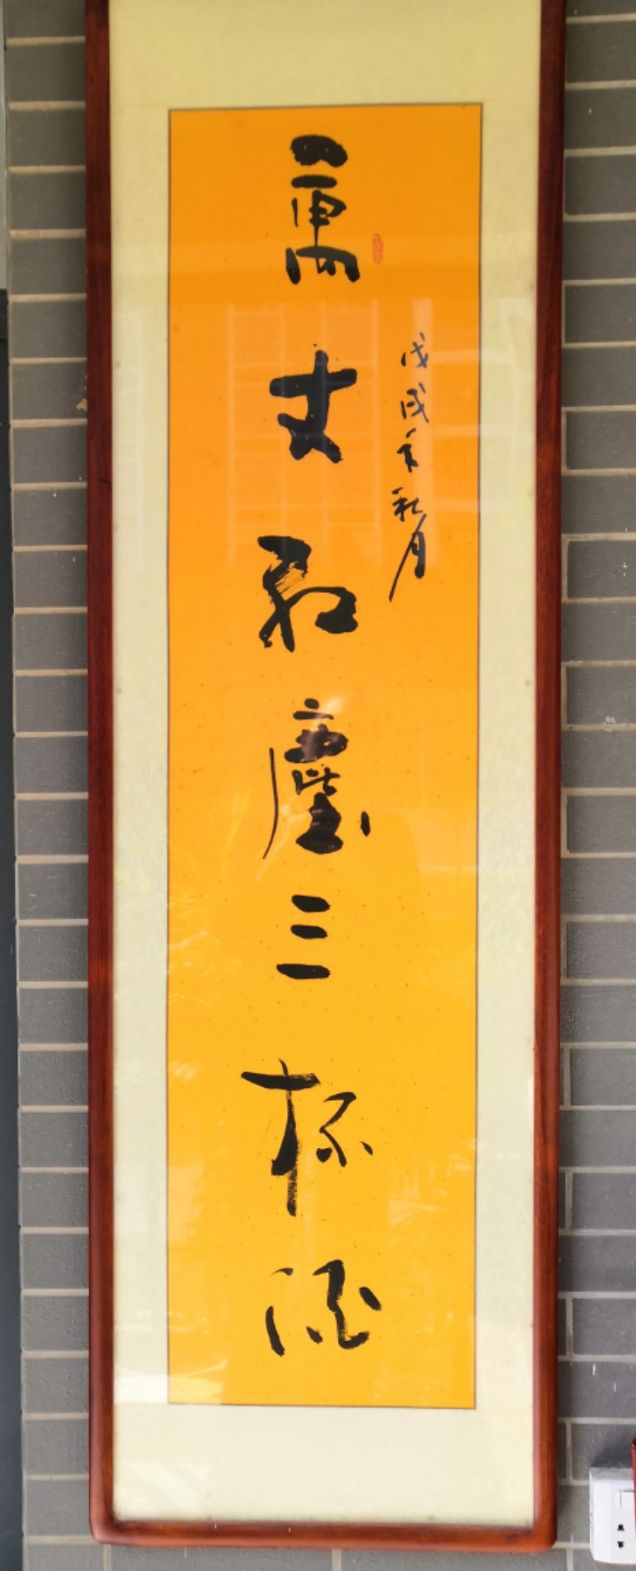 戊戌年秋月
萬丈紅塵三杯酒